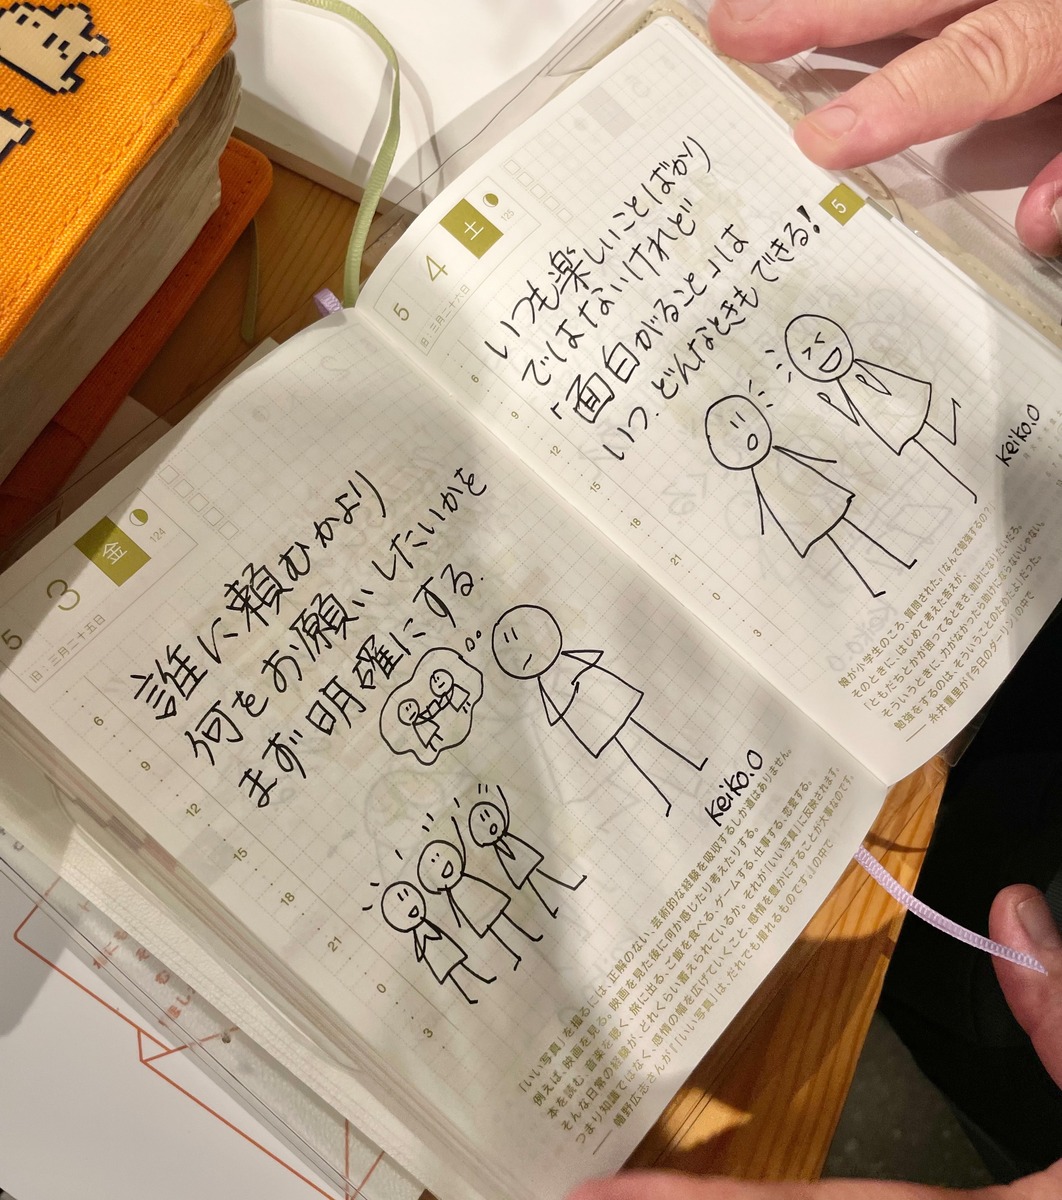 5
3
金
124
旧・三月二十五日
誰に頼むかより
何をお願いしたいかを
まず明確にする.
keiko.o
6
9
12
15
18
21
0
3
「いい写真」を撮るには、正解のない、芸術的な経験を吸収するしか道はありません。
例えば、映画を見る。映画を見た後に何か感じたり考えたりする。
本を読む、音楽を聴く、旅に出る、ご飯を食べる、ゲームする、仕事する、恋愛する。
そんな日常の経験が、どれくらい蓄えられているか。それが「いい写真」に反映されます。
つまり知識ではなく、感情の幅を広げていくこと、感情を豊かにすることが大事なのです。
「いい写真」は、だれでも撮れるものです。
5
4
土
125
旧・三月二十六日
5
いつも楽しいことばかり
ではないけれど
「面白がること」は
いつ.どんなときもできる!
keiko.o
6
9
12
15
18
21
0
3
娘が小学生のころ、質問された。「なんで勉強するの?」
そのときに、はじめて考えた答えが、
「ともだちとかが困ってるときさ、助けになりたいだろ。
そういうときに、力がなかったら助けにならないじゃない。
勉強をするのは、そういうことのためだよ」だった。
──糸井重里が『今日のダーリン』の中で